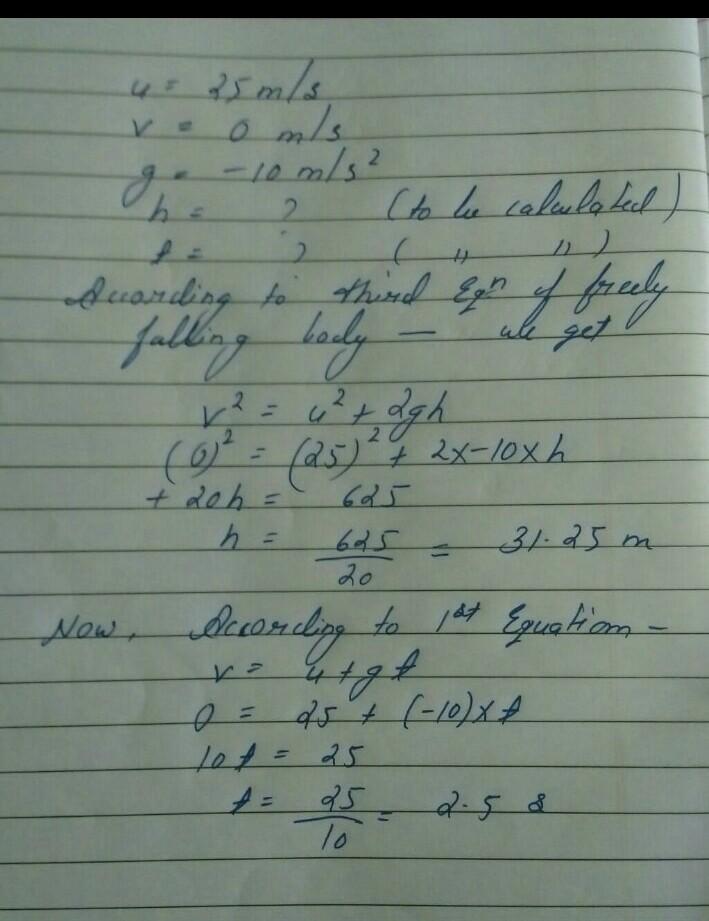 u = 25 m/s
v = 0 m/s
g = -10 m/s²
h = ? (to be calculated)
t = ? ( " " )
According to third Eqn of freely
falling body — we get
v² = u² + 2gh
(0)² = (25)² + 2x-10xh
+ 20h = 625
h = 625/20 = 31.25 m
Now, According to 1st Equation -
v = u + gt
0 = 25 + (-10) x t
10t = 25
t = 25/10 = 2.5 s